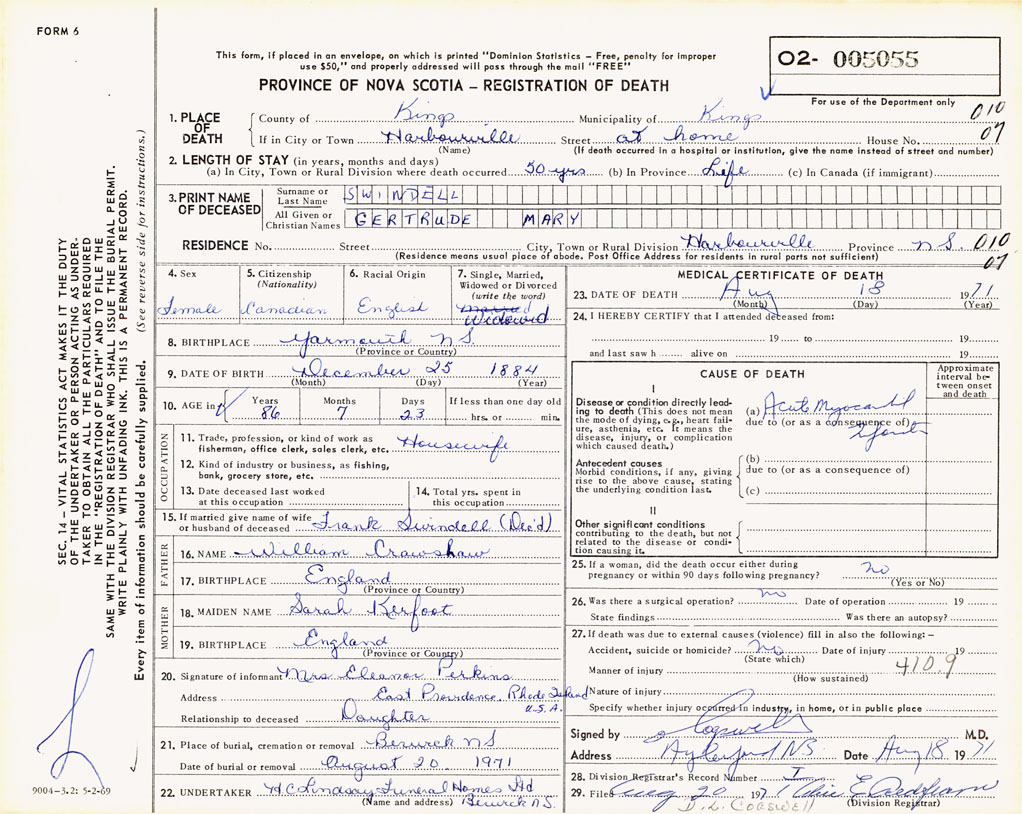 FORM 6
This form, if placed in an envelope, on which is printed "Dominion Statistics – Free, penalty for improper
use $50," and properly addressed will pass through the mail "FREE"
O2- 005055
PROVINCE OF NOVA SCOTIA – REGISTRATION OF DEATH
For use of the Department only
1. PLACE OF DEATH
County of Kings Municipality of Kings 010
If in City or Town Harbourville Street at home House No. 07
(Name) (If death occurred in a hospital or institution, give the name instead of street and number)
2. LENGTH OF STAY (in years, months and days)
(a) In City, Town or Rural Division where death occurred 50 yrs (b) In Province Life (c) In Canada (if immigrant)
3. PRINT NAME OF DECEASED
Surname or Last Name SWINDELL
All Given or Christian Names GERTRUDE MARY
RESIDENCE No. Street City, Town or Rural Division Harbourville Province N.S. 010
(Residence means usual place of abode. Post Office Address for residents in rural parts not sufficient) 07
4. Sex
Female
5. Citizenship
(Nationality)
Canadian
6. Racial Origin
English
7. Single, Married,
Widowed or Divorced
(write the word)
Widowed
8. BIRTHPLACE Yarmouth N.S.
(Province or Country)
9. DATE OF BIRTH December 25 1884
(Month) (Day) (Year)
10. AGE in
Years Months Days If less than one day old
86 7 23 hrs. or min.
OCCUPATION
11. Trade, profession, or kind of work as
fisherman, office clerk, sales clerk, etc. Housewife
12. Kind of industry or business, as fishing,
bank, grocery store, etc.
13. Date deceased last worked
at this occupation
14. Total yrs. spent in
this occupation
15. If married give name of wife
or husband of deceased Frank Swindell (Dec'd)
FATHER
16. NAME William Crawshaw
17. BIRTHPLACE England
(Province or Country)
MOTHER
18. MAIDEN NAME Sarah Kerfoot
19. BIRTHPLACE England
(Province or Country)
20. Signature of informant Mrs. Eleanor Perkins
Address East Providence, Rhode Island
U.S.A.
Relationship to deceased Daughter
21. Place of burial, cremation or removal Berwick NS
Date of burial or removal August 20 1971
22. UNDERTAKER H.C. Lindsay Funeral Homes Ltd
(Name and address) Berwick N.S.
MEDICAL CERTIFICATE OF DEATH
23. DATE OF DEATH Aug 18 1971
(Month) (Day) (Year)
24. I HEREBY CERTIFY that I attended deceased from:
19 to 19
and last saw h alive on 19
CAUSE OF DEATH
Approximate
interval be-
tween onset
and death
I
Disease or condition directly lead-
ing to death (This does not mean
the mode of dying, e.g., heart fail-
ure, asthenia, etc. It means the
disease, injury, or complication
which caused death.)
(a) Acute Myocardial
due to (or as a consequence of)
Antecedent causes
Morbid conditions, if any, giving
rise to the above cause, stating
the underlying condition last.
(b)
due to (or as a consequence of)
(c)
II
Other significant conditions
contributing to the death, but not
related to the disease or condi-
tion causing it.
25. If a woman, did the death occur either during
pregnancy or within 90 days following pregnancy? no
(Yes or No)
26. Was there a surgical operation? no Date of operation 19
State findings Was there an autopsy?
27. If death was due to external causes (violence) fill in also the following: –
Accident, suicide or homicide? No Date of injury 19
(State which)
Manner of injury 410.9
(How sustained)
Nature of injury
Specify whether injury occurred in industry, in home, or in public place
Signed by Cogswell M.D.
Address Aylesford N.S. Date Aug 18 1971
28. Division Registrar's Record Number
29. Filed Aug 20 197
D. L. COGSWELL (Division Registrar)
SEC. 14 – VITAL STATISTICS ACT MAKES IT THE DUTY
OF THE UNDERTAKER OR PERSON ACTING AS UNDER-
TAKER TO OBTAIN ALL THE PARTICULARS REQUIRED
IN THE "REGISTRATION OF DEATH" AND TO FILE THE
SAME WITH THE DIVISION REGISTRAR WHO SHALL ISSUE THE BURIAL PERMIT.
WRITE PLAINLY WITH UNFADING INK. THIS IS A PERMANENT RECORD.
Every item of information should be carefully supplied. (See reverse side for instructions.)
9004–3.2: 5-2-69